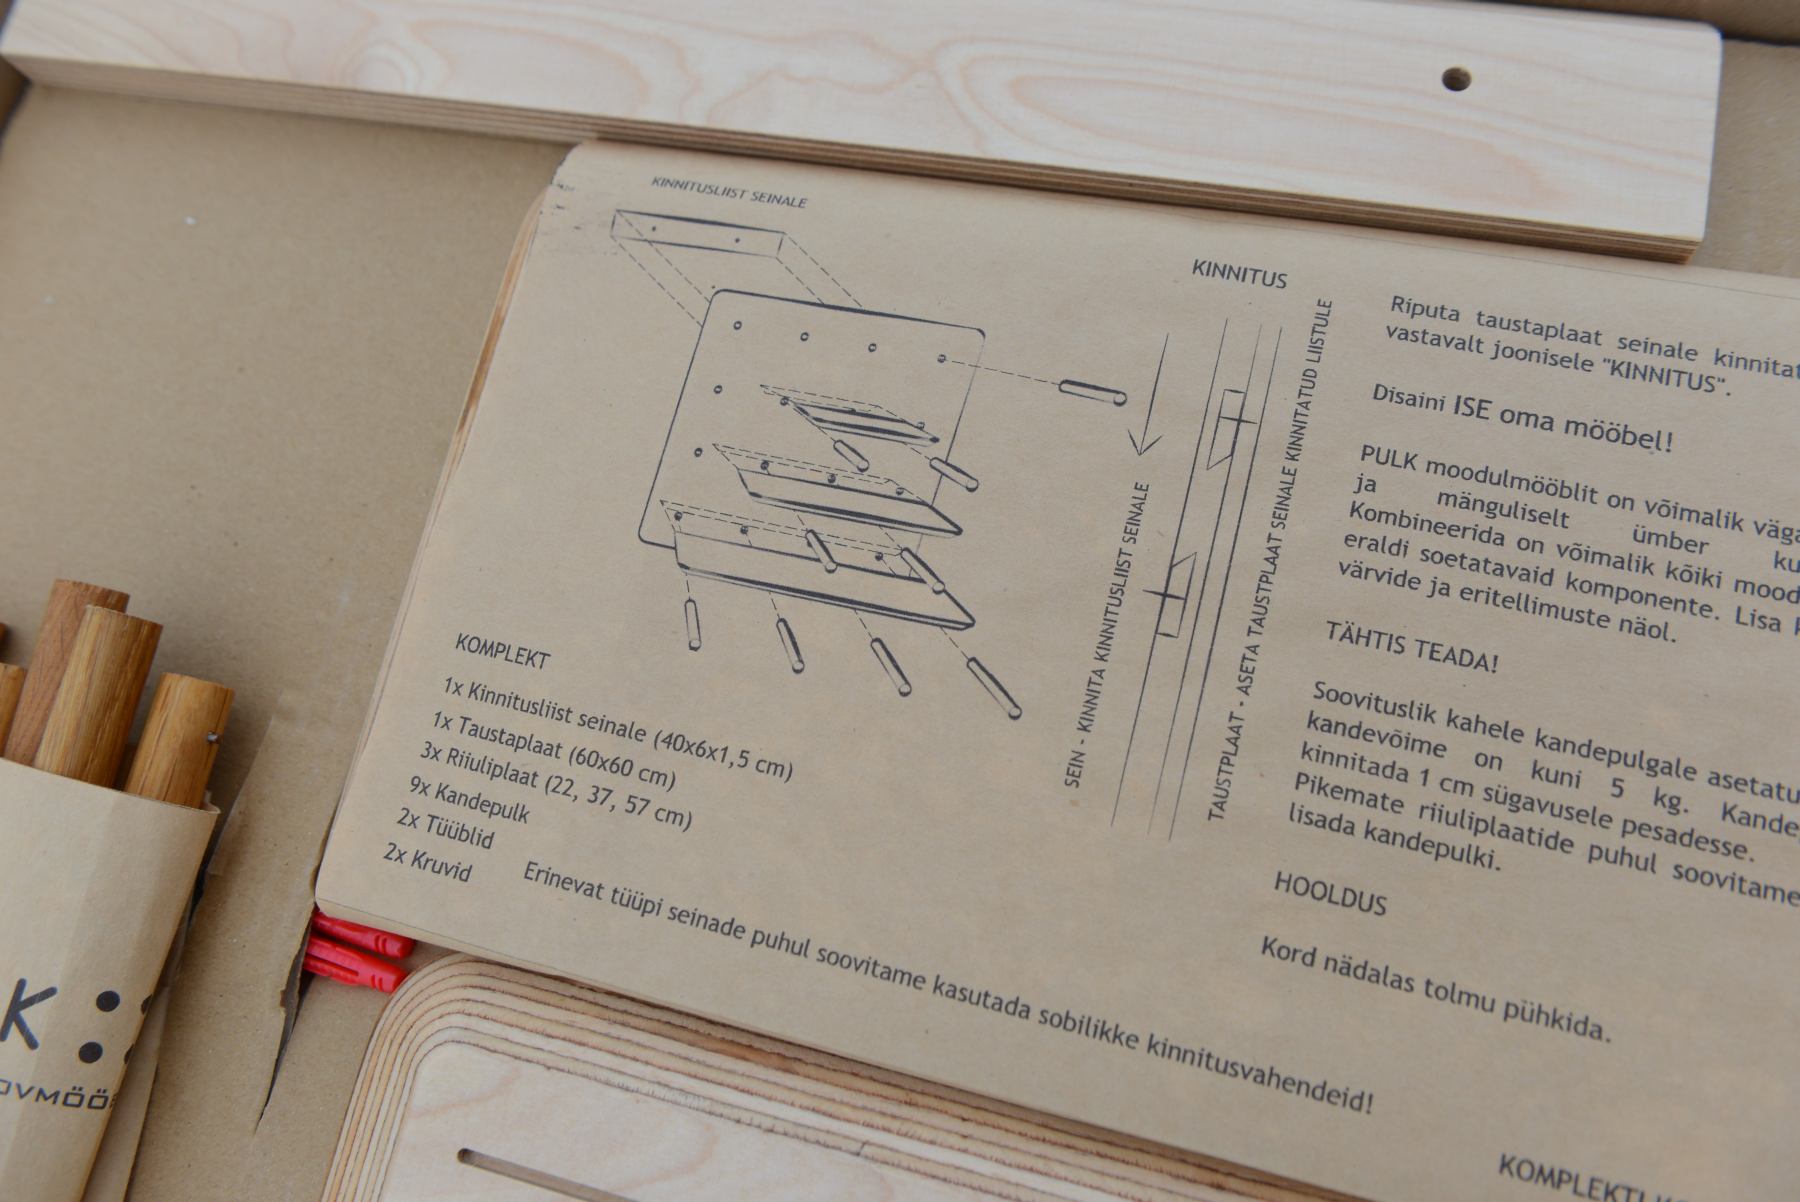 KINNITUSLIIST SEINALE
KOMPLEKT
1x Kinnitusliist seinale (40x6x1,5 cm)
1x Taustaplaat (60x60 cm)
3x Riiuliplaat (22, 37, 57 cm)
9x Kandepulk
2x Tüüblid
2x Kruvid
Erinevat tüüpi seinade puhul soovitame kasutada sobilikke kinnitusvahendeid!
KINNITUS
SEIN - KINNITA KINNITUSLIIST SEINALE
TAUSTPLAAT - ASETA TAUSTPLAAT SEINALE KINNITATUD LIISTULE
Riputa taustaplaat seinale
vastavalt joonisele "KINNITUS".
Disaini ISE oma mööbel!
PULK moodulmööblit on võimalik
ja mänguliselt ümber
Kombineerida on võimalik kõiki
eraldi soetatavaid komponente. Lisa
värvide ja eritellimuste näol.
TÄHTIS TEADA!
Soovituslik kahele kandepulgale
kandevõime on kuni 5 kg.
kinnitada 1 cm sügavusele pesadesse.
Pikemate riiuliplaatide puhul soovitame
lisada kandepulki.
HOOLDUS
Kord nädalas tolmu pühkida.
K